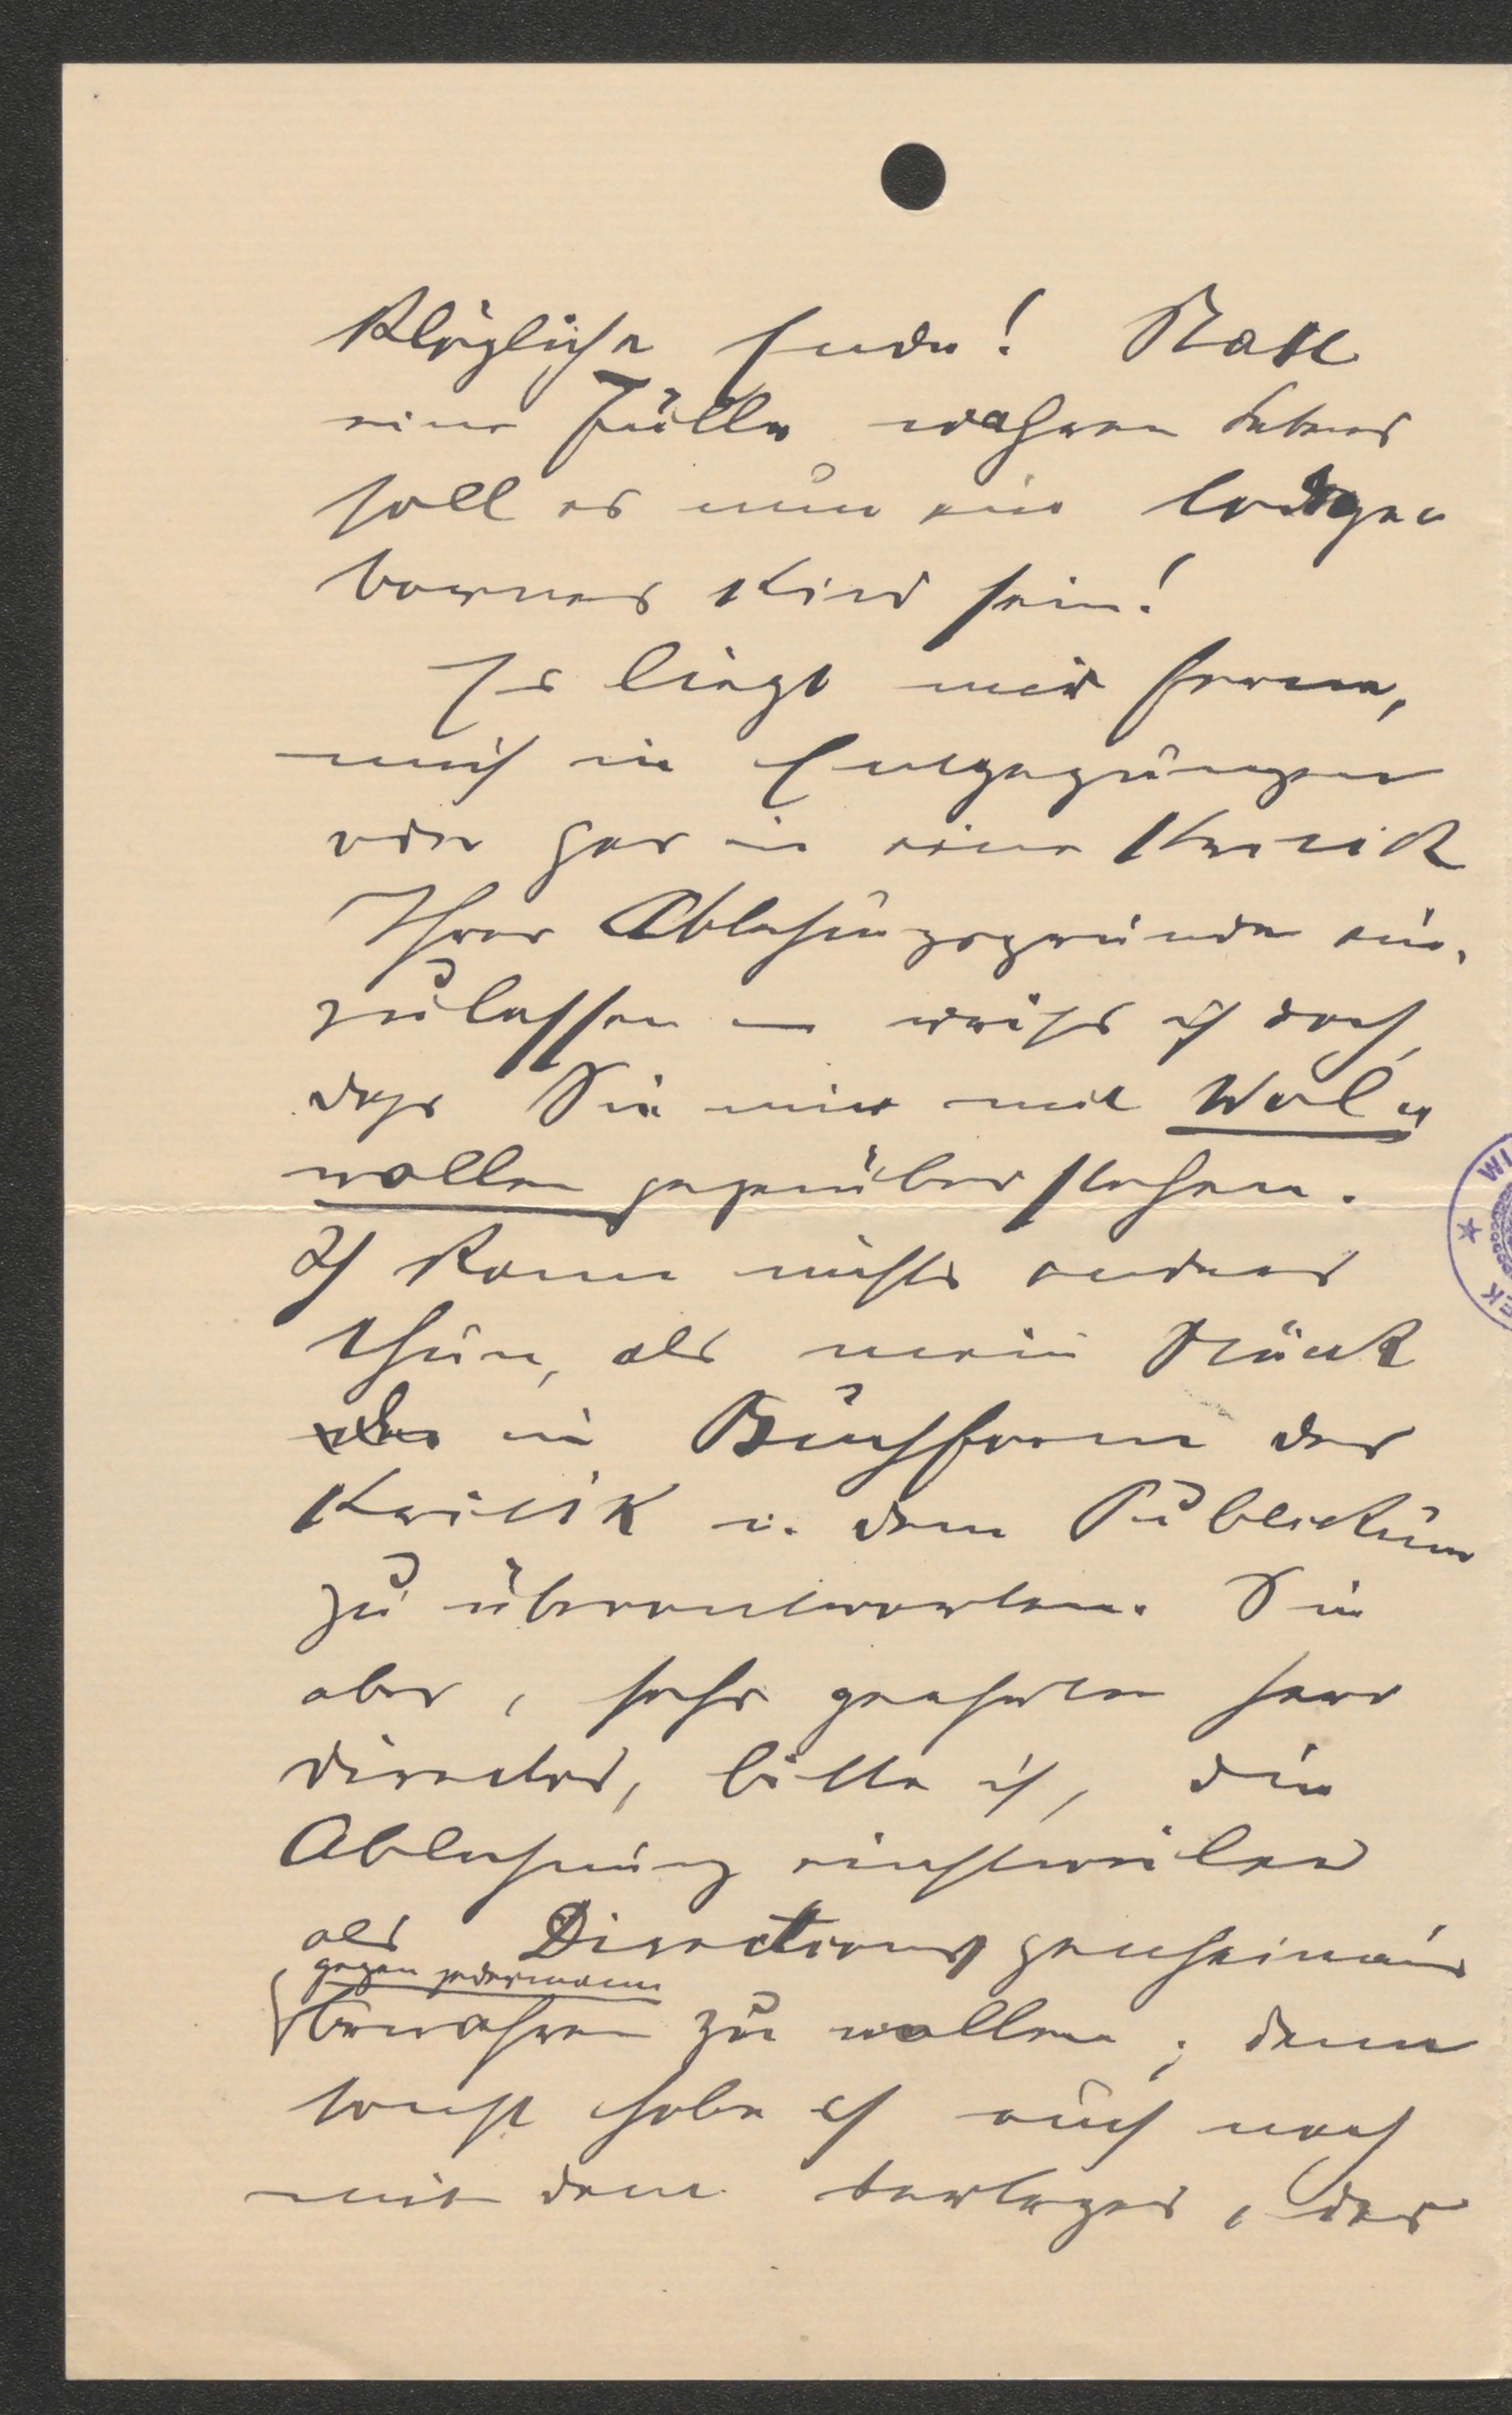 klägliche Ende! Statt
einer Fülle wahren Lebens
soll es nun ein todtge-
bornes Kind sein!
Es liegt mir ferne,
mich in Entgegnungen
oder gar in eine Kritik
Ihrer Ablehnungsgründe ein-
zulassen – weiß ich doch,
daß Sie mir mit Wol-
wollen gegenüber stehen.
Ich kann nichts anderes
thun, als mein Stück
in Buchform der
Kritik u. dem Publikum
zu überantworten. Sie
aber, sehr geehrter Herr
Director, bitte ich, die
Ablehnung einstweilen
als Directionsgeheimnis
gegen jedermann
bewahren zu wollen; denn
sonst habe ich auch noch
mit dem Verleger, der
WI
EK